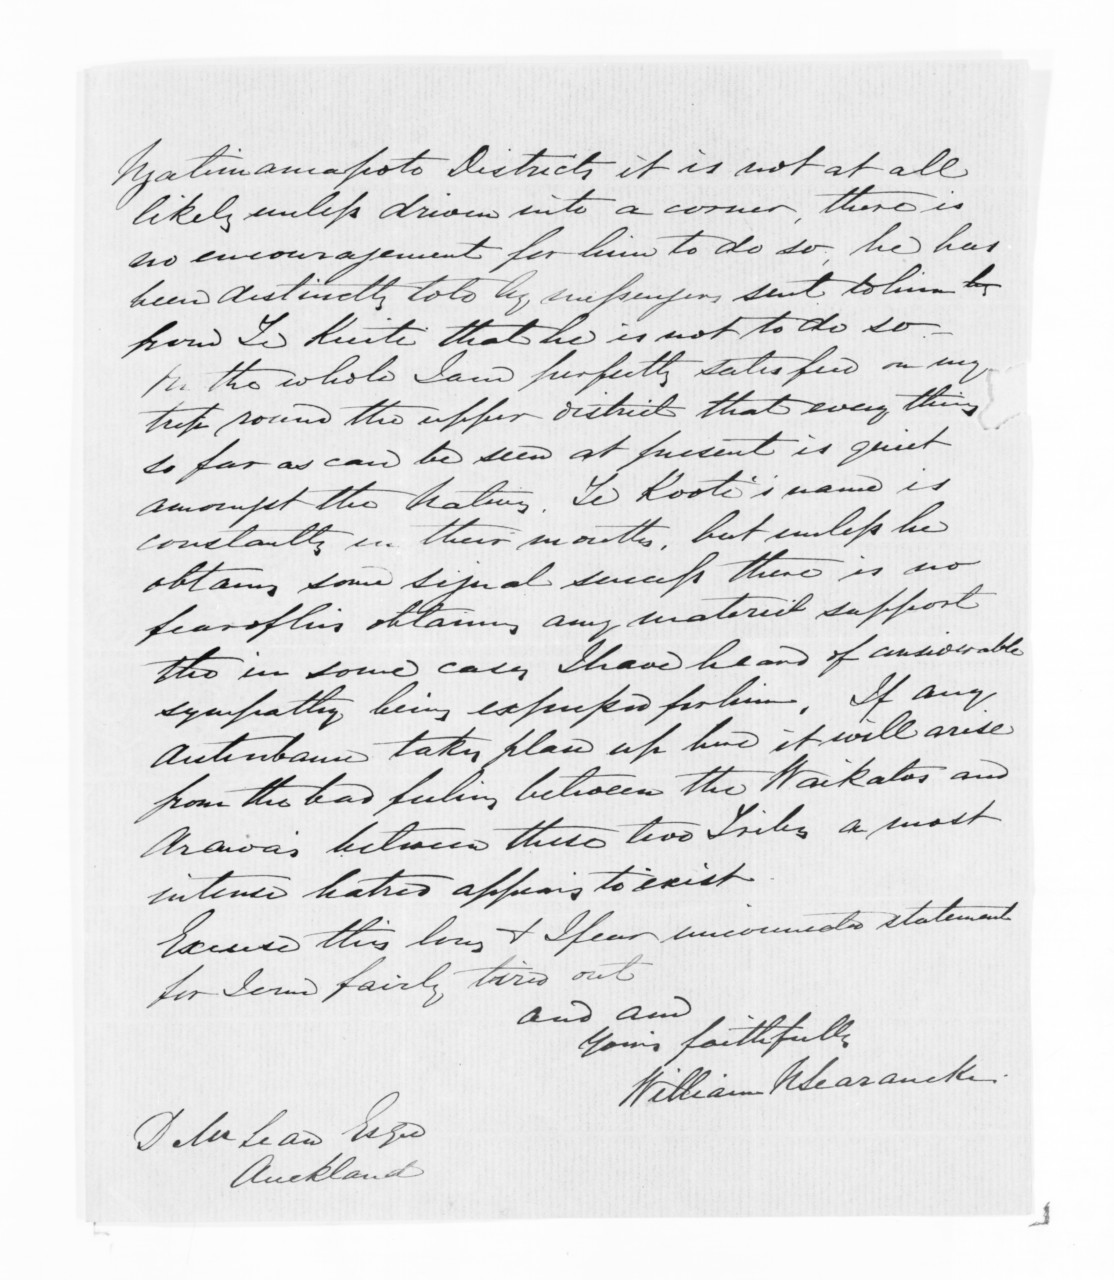 Ngatimamapoto Districts it is not at all
likely unless driven into a corner, there is
no encouragement for him to do so, he has
been distinctly told by messengers sent to him by
from Te Kuiti that he is not to do so -
On the whole I am perfectly satisfied on my
trip round the upper district that every thing
so far as can be seen at present is quiet
amongst the Natives. Te Kooti's name is
constantly in their mouths, but unless he
obtains some signal success there is no
fear of his obtaining any material support
tho' in some cases I have heard of considerable
sympathy being expressed for him. If any
disturbance takes place up here it will arise
from the bad feeling between the Waikatos and
Arawa's between these two Tribes a most
intense hatred appears to exist.
Excuse this long & I fear unconnected statement
for I am fairly tired out
and am
Yours faithfully
William N Searancke.
D McLean Esqre
Auckland